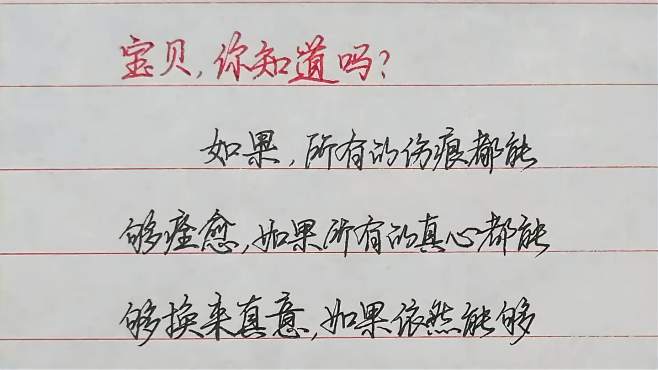 宝贝,你知道吗?
如果,所有的伤痕都能
够痊愈,如果所有的真心都能
够换来真意,如果依然能够